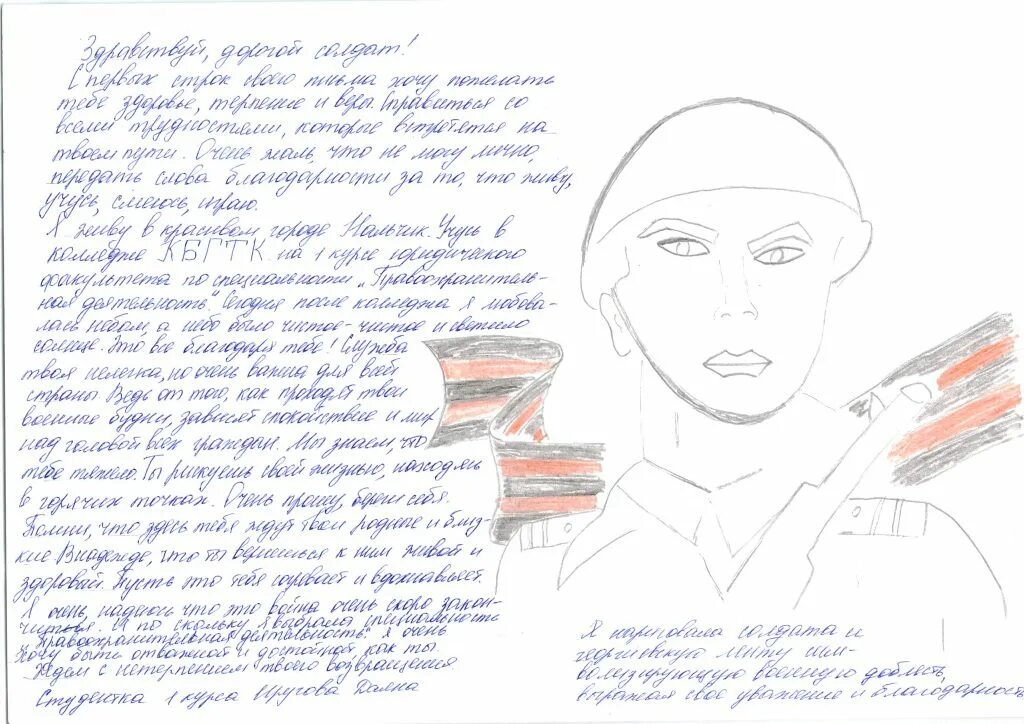 Здравствуй, дорогой солдат!
С первых строк своего письма хочу пожелать
тебе здоровье, терпение и веры. Справиться со
всеми трудностями, которые встретятся на
твоем пути. Очень жаль, что не могу лично,
передать слова благодарности за то, что живу,
учусь, смеюсь, играю.
Я живу в красивом городе Нальчик. Учусь в
колледже КБГТК на 1 курсе юридического
факультета по специальности „Правоохранитель-
ная деятельность". Сегодня после колледжа я любова-
лась небом, а небо было чистое-чистое и светило
солнце. Это все благодаря тебе! Служба
твоя нелегка, но очень важна для всей
страны. Ведь от того, как проходят твои
военные будни, зависят спокойствие и мир
над головой всех граждан. Мы знаем, что
тебе тяжело. Ты рискуешь своей жизнью, находясь
в горячих точках. Очень прошу, береги себя.
Помни, что здесь тебя ждут твои родные и близ-
кие. В надежде, что ты вернешься к ним живой и
здоровый. Пусть это тебя согревает и вдохновляет.
Я очень, надеюсь что это война очень скоро закон-
читься. И по скольку я выбрала специальность
"Правоохранительная деятельность" я очень
хочу быть отважной и достойной, как ты.
Ждем с нетерпением твоего возвращения
Студентка 1 курса Даяна
Я нарисовала солдата и
георгиевскую ленту сим-
волизирующую военную доблесть,
выражая свое уважение и благодарность